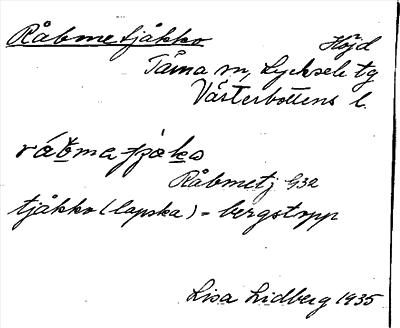 Råbmetjåkko Höjd
Täma sn, Lycksele tg
Västerbottens l.
råbma tjåkå
Råbmetj G32
tjåkko (lapska) = bergstopp
Lisa Lidberg 1935